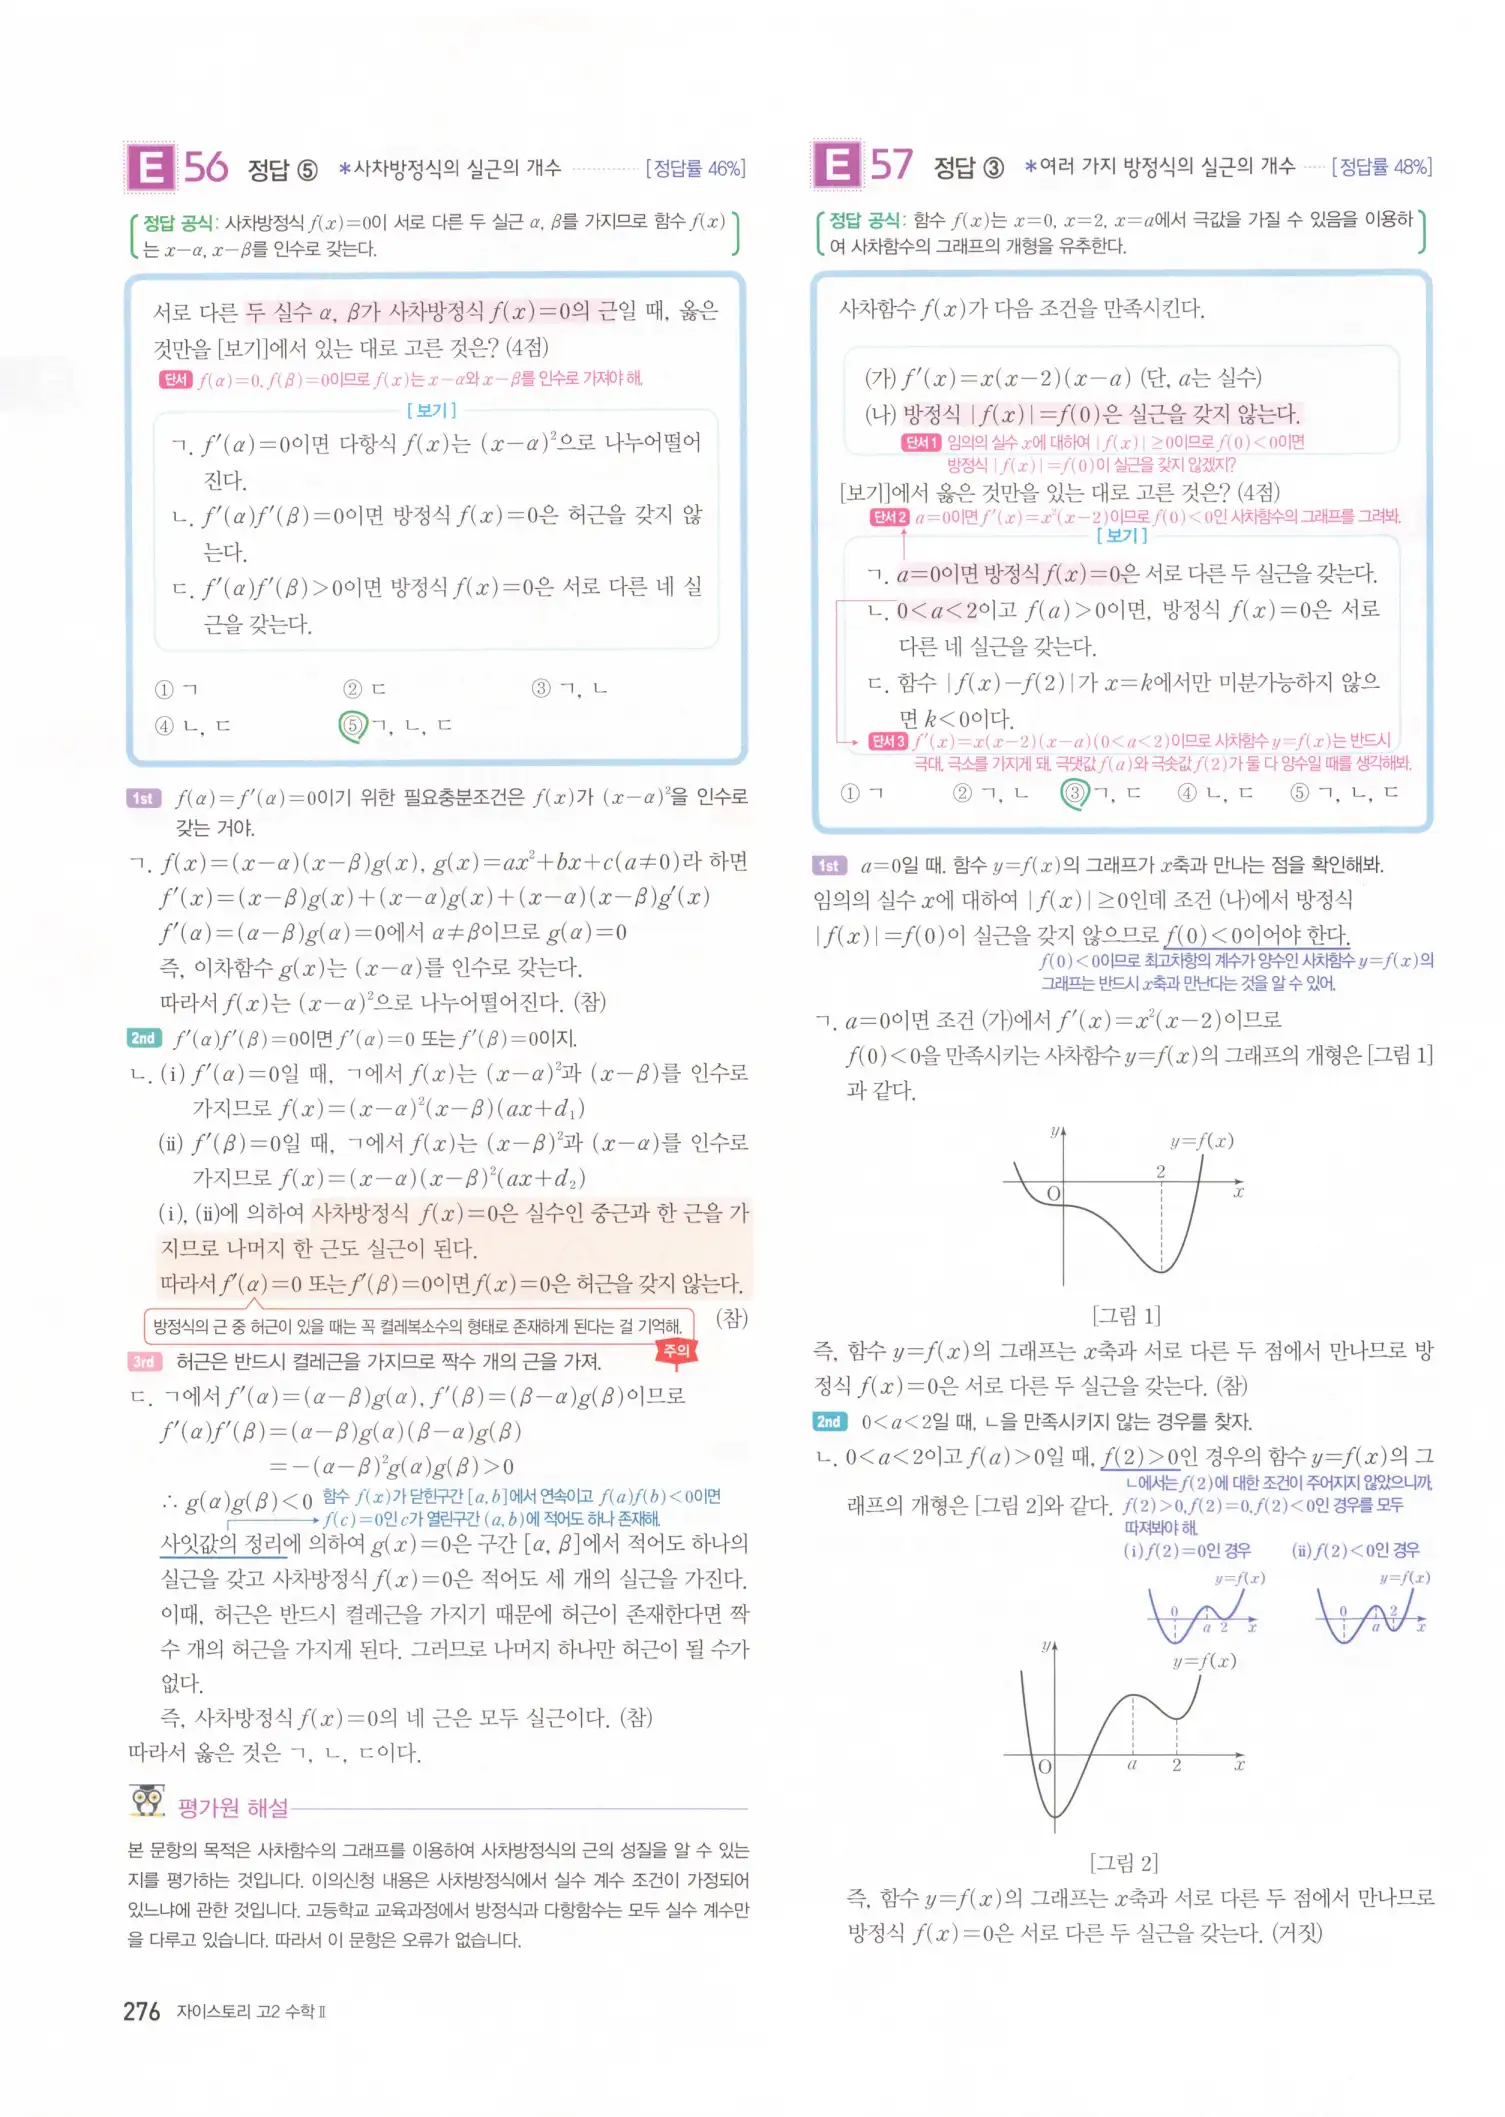 E 56 정답 ⑤ *사차방정식의 실근의 개수 ············ [정답률 46%]
정답 공식: 사차방정식 f(x)=0이 서로 다른 두 실근 α, β를 가지므로 함수 f(x)
는 x-α, x-β를 인수로 갖는다.
서로 다른 두 실수 α, β가 사차방정식 f(x)=0의 근일 때, 옳은
것만을 [보기]에서 있는 대로 고른 것은? (4점)
단서 f(α)=0, f(β)=0이므로 f(x)는 x-α와 x-β를 인수로 가져야 해.
[보기]
ㄱ. f′(α)=0이면 다항식 f(x)는 (x-α)²으로 나누어떨어
진다.
ㄴ. f′(α)f′(β)=0이면 방정식 f(x)=0은 허근을 갖지 않
는다.
ㄷ. f′(α)f′(β)>0이면 방정식 f(x)=0은 서로 다른 네 실
근을 갖는다.
① ㄱ ② ㄷ ③ ㄱ, ㄴ
④ ㄴ, ㄷ ⑤ ㄱ, ㄴ, ㄷ
1st f(α)=f′(α)=0이기 위한 필요충분조건은 f(x)가 (x-α)²을 인수로
갖는 거야.
ㄱ. f(x)=(x-α)(x-β)g(x), g(x)=ax²+bx+c(a≠0)라 하면
f′(x)=(x-β)g(x)+(x-α)g(x)+(x-α)(x-β)g′(x)
f′(α)=(α-β)g(α)=0에서 α≠β이므로 g(α)=0
즉, 이차함수 g(x)는 (x-α)를 인수로 갖는다.
따라서 f(x)는 (x-α)²으로 나누어떨어진다. (참)
2nd f′(α)f′(β)=0이면 f′(α)=0 또는 f′(β)=0이지.
ㄴ. (ⅰ) f′(α)=0일 때, ㄱ에서 f(x)는 (x-α)²과 (x-β)를 인수로
가지므로 f(x)=(x-α)²(x-β)(ax+d₁)
(ⅱ) f′(β)=0일 때, ㄱ에서 f(x)는 (x-β)²과 (x-α)를 인수로
가지므로 f(x)=(x-α)(x-β)²(ax+d₂)
(ⅰ), (ⅱ)에 의하여 사차방정식 f(x)=0은 실수인 중근과 한 근을 가
지므로 나머지 한 근도 실근이 된다.
따라서 f′(α)=0 또는 f′(β)=0이면 f(x)=0은 허근을 갖지 않는다.
(참)
방정식의 근 중 허근이 있을 때는 꼭 켤레복소수의 형태로 존재하게 된다는 걸 기억해.
주의
3rd 허근은 반드시 켤레근을 가지므로 짝수 개의 근을 가져.
ㄷ. ㄱ에서 f′(α)=(α-β)g(α), f′(β)=(β-α)g(β)이므로
f′(α)f′(β)=(α-β)g(α)(β-α)g(β)
=-(α-β)²g(α)g(β)>0
∴ g(α)g(β)<0 함수 f(x)가 닫힌구간 [a, b]에서 연속이고 f(a)f(b)<0이면
f(c)=0인 c가 열린구간 (a, b)에 적어도 하나 존재해.
사잇값의 정리에 의하여 g(x)=0은 구간 [α, β]에서 적어도 하나의
실근을 갖고 사차방정식 f(x)=0은 적어도 세 개의 실근을 가진다.
이때, 허근은 반드시 켤레근을 가지기 때문에 허근이 존재한다면 짝
수 개의 허근을 가지게 된다. 그러므로 나머지 하나만 허근이 될 수가
없다.
즉, 사차방정식 f(x)=0의 네 근은 모두 실근이다. (참)
따라서 옳은 것은 ㄱ, ㄴ, ㄷ이다.
평가원 해설
본 문항의 목적은 사차함수의 그래프를 이용하여 사차방정식의 근의 성질을 알 수 있는
지를 평가하는 것입니다. 이의신청 내용은 사차방정식에서 실수 계수 조건이 가정되어
있느냐에 관한 것입니다. 고등학교 교육과정에서 방정식과 다항함수는 모두 실수 계수만
을 다루고 있습니다. 따라서 이 문항은 오류가 없습니다.
276 자이스토리 고2 수학Ⅱ
E 57 정답 ③ *여러 가지 방정식의 실근의 개수 ···· [정답률 48%]
정답 공식: 함수 f(x)는 x=0, x=2, x=a에서 극값을 가질 수 있음을 이용하
여 사차함수의 그래프의 개형을 유추한다.
사차함수 f(x)가 다음 조건을 만족시킨다.
(가) f′(x)=x(x-2)(x-a) (단, a는 실수)
(나) 방정식 |f(x)|=f(0)은 실근을 갖지 않는다.
단서1 임의의 실수 x에 대하여 |f(x)|≥0이므로 f(0)<0이면
방정식 |f(x)|=f(0)이 실근을 갖지 않겠지?
[보기]에서 옳은 것만을 있는 대로 고른 것은? (4점)
단서2 a=0이면 f′(x)=x²(x-2)이므로 f(0)<0인 사차함수의 그래프를 그려봐.
[보기]
ㄱ. a=0이면 방정식 f(x)=0은 서로 다른 두 실근을 갖는다.
ㄴ. 0<a<2이고 f(a)>0이면, 방정식 f(x)=0은 서로
다른 네 실근을 갖는다.
ㄷ. 함수 |f(x)-f(2)|가 x=k에서만 미분가능하지 않으
면 k<0이다.
단서3 f′(x)=x(x-2)(x-a)(0<a<2)이므로 사차함수 y=f(x)는 반드시
극대, 극소를 가지게 돼. 극댓값 f(a)와 극솟값 f(2)가 둘 다 양수일 때를 생각해봐.
① ㄱ ② ㄱ, ㄴ ③ ㄱ, ㄷ ④ ㄴ, ㄷ ⑤ ㄱ, ㄴ, ㄷ
1st a=0일 때, 함수 y=f(x)의 그래프가 x축과 만나는 점을 확인해봐.
임의의 실수 x에 대하여 |f(x)|≥0인데 조건 (나)에서 방정식
|f(x)|=f(0)이 실근을 갖지 않으므로 f(0)<0이어야 한다.
f(0)<0이므로 최고차항의 계수가 양수인 사차함수 y=f(x)의
그래프는 반드시 x축과 만난다는 것을 알 수 있어.
ㄱ. a=0이면 조건 (가)에서 f′(x)=x²(x-2)이므로
f(0)<0을 만족시키는 사차함수 y=f(x)의 그래프의 개형은 [그림 1]
과 같다.
y
y=f(x)
2
O
x
[그림 1]
즉, 함수 y=f(x)의 그래프는 x축과 서로 다른 두 점에서 만나므로 방
정식 f(x)=0은 서로 다른 두 실근을 갖는다. (참)
2nd 0<a<2일 때, ㄴ을 만족시키지 않는 경우를 찾자.
ㄴ. 0<a<2이고 f(a)>0일 때, f(2)>0인 경우의 함수 y=f(x)의 그
래프의 개형은 [그림 2]와 같다.
ㄴ에서는 f(2)에 대한 조건이 주어지지 않았으니까,
f(2)>0, f(2)=0, f(2)<0인 경우를 모두
따져봐야 해.
(ⅰ) f(2)=0인 경우 (ⅱ) f(2)<0인 경우
y=f(x) y=f(x)
0 a 2 x 0 a 2 x
y
y=f(x)
O a 2 x
[그림 2]
즉, 함수 y=f(x)의 그래프는 x축과 서로 다른 두 점에서 만나므로
방정식 f(x)=0은 서로 다른 두 실근을 갖는다. (거짓)